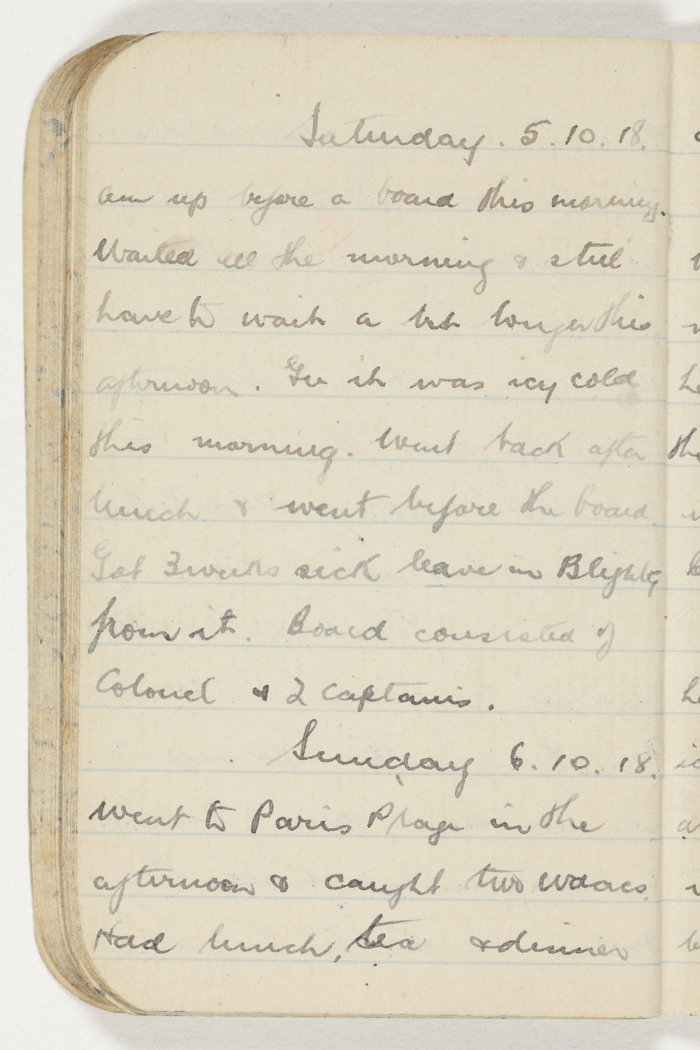 Saturday. 5.10.18.
am up before a board this morning.
Waited all the morning & still
have to wait a bit longer this
afternoon. Gee it was icy cold
this morning. Went back after
lunch & went before the board.
Got 3 weeks sick leave in Blighty
from it. Board consisted of
Colonel & 2 Captains.
Sunday 6.10.18.
Went to Paris Plage in the
afternoon & caught two Waacs
Had lunch, tea & dinner